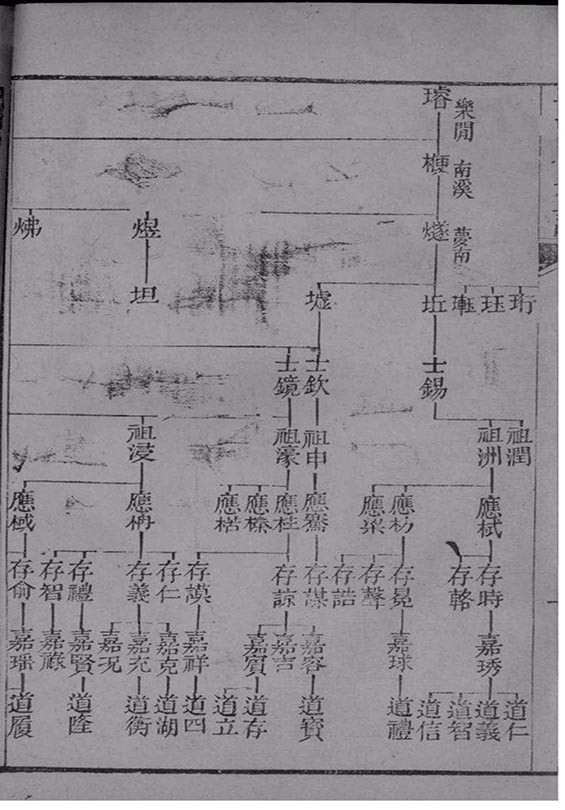 璿 樂閒
梗 南溪
燧 夢南 煜 炥
珩 珏 坵 墟 坦
士錫 士欽 士鏡
祖潤 祖洲 祖申 祖濠 祖浸
應栻 應杓 應梁 應騫 應柱 應榛 應楛 應枘 應棫
存時 存輅 存晃 存聲 存誥 存謀 存諒 存謨 存仁 存義 存禮 存智 存俞
嘉琇 嘉球 嘉容 嘉吉 嘉賔 嘉祥 嘉克 嘉充 嘉况 嘉賢 嘉祿 嘉瑶
道仁 道義 道智 道信 道禮 道寳 道存 道立 道四 道湖 道衡 道隆 道履